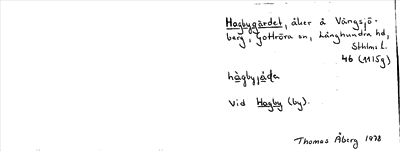 Hagbygärdet, åker å Vängsjö-
berg, Gottröra sn, Långhundra hd,
Sthlms l.
46 (1115g)
hàgbyjǻda
Vid Hagby (by).
Thomas Åberg 1978